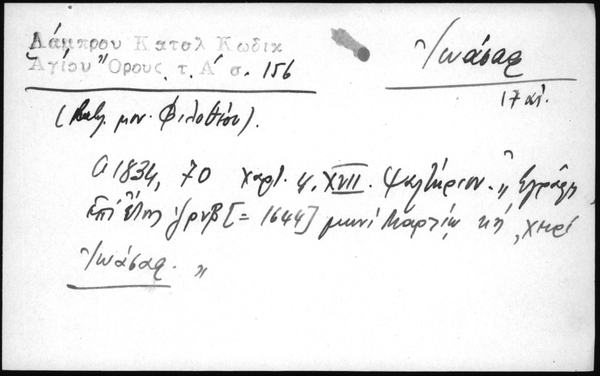 Λάμπρου Κατολ Κωδικ
Ἁγίου Ὄρους τ. Α' σ. 156
Ἰωάσαφ
17 αἰ.
μον. Φιλοθέου).
1834, 70 χαρτ. 4, XVII. Ψαλτήριον. „ Ἐγράφη
ἐπὶ ἔτους ζρνβ [= 1644] μηνὶ Μαρτίῳ κή, χειρὶ
Ἰωάσαφ. „